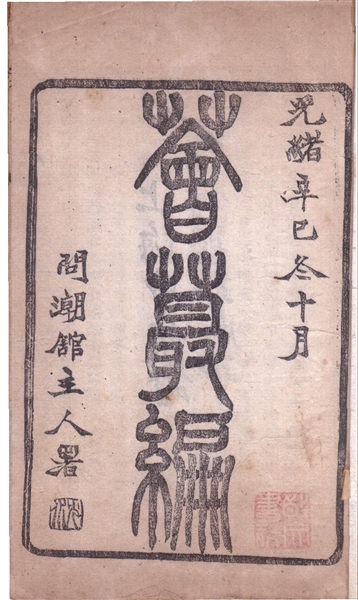 光緒辛巳冬十月
薈蕞編
問潮館主人署